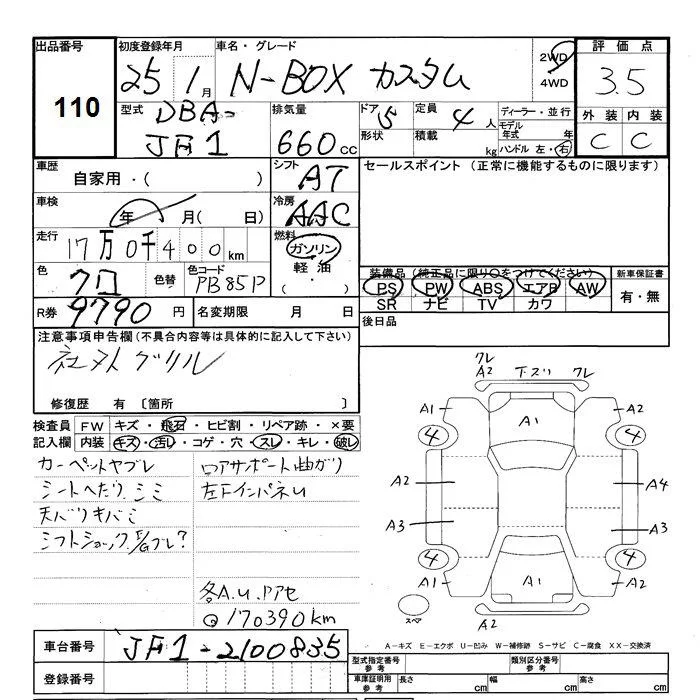 出品番号 初度登録年月 車名・グレード 評価点
110
25 1月 N-BOX カスタム 2WD 4WD 3.5
型式 DBA- JF1
排気量 660cc
ドア 5 形状
定員 4人 積載 kg
ディーラー・並行
モデル年式 年
ハンドル 左・右
外装 内装
C C
車歴 自家用・( )
シフト AT
セールスポイント (正常に機能するものに限ります)
車検 年 月( 日)
冷房 AAC
走行 17万0千400km
燃料 ガソリン 軽油 ( ・ )
色 クロ 色替 色コード PB85P
装備品 (純正品に限り○をつけてください) 新車保証書
PS PW ABS エアB AW 有・無
SR ナビ TV カワ
R券 9790円 名変期限 月 日
後日品
注意事項申告欄(不具合内容等は具体的に記入して下さい)
社外グリル
修復歴 有〔箇所 〕
検査員記入欄 FW キズ・飛石・ヒビ割・リペア跡・×要
内装 キズ・汚レ・コゲ・穴・スレ・キレ・破レ
カーペットヤブレ
シートヘたり、シミ
天バリキバミ
シフトショック、E/Gブレ?
ロアサポート曲がり
左下インパネU
各A.U.Pアセ
170390km
クレ A2 下スリ クレ
A1 A1 A2
4 4
A2 A4
A3 A3
4 4
A1 A1 A2
スペア A2
車台番号 JF1-2100835
A-キズ E-エクボ U-凹み W-補修跡 S-サビ C-腐食 XX-交換済
登録番号
型式指定番号 参考 類別区分番号 参考
車庫証明用 参考 長さ cm 幅 cm 高さ cm